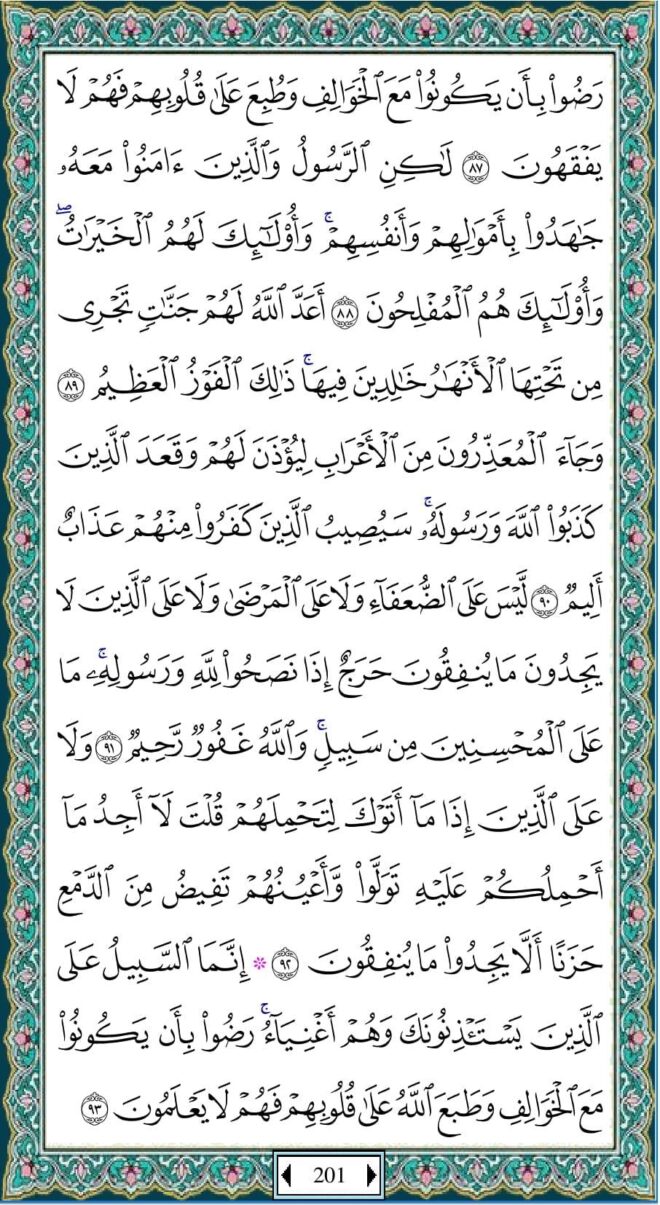 رَضُوا۟ بِأَن يَكُونُوا۟ مَعَ ٱلْخَوَالِفِ وَطُبِعَ عَلَىٰ قُلُوبِهِمْ فَهُمْ لَا
يَفْقَهُونَ ٨٧ لَٰكِنِ ٱلرَّسُولُ وَٱلَّذِينَ ءَامَنُوا۟ مَعَهُۥ
جَٰهَدُوا۟ بِأَمْوَٰلِهِمْ وَأَنفُسِهِمْ ۚ وَأُو۟لَٰٓئِكَ لَهُمُ ٱلْخَيْرَٰتُ ۖ
وَأُو۟لَٰٓئِكَ هُمُ ٱلْمُفْلِحُونَ ٨٨ أَعَدَّ ٱللَّهُ لَهُمْ جَنَّٰتٍ تَجْرِى
مِن تَحْتِهَا ٱلْأَنْهَٰرُ خَٰلِدِينَ فِيهَا ۚ ذَٰلِكَ ٱلْفَوْزُ ٱلْعَظِيمُ ٨٩
وَجَآءَ ٱلْمُعَذِّرُونَ مِنَ ٱلْأَعْرَابِ لِيُؤْذَنَ لَهُمْ وَقَعَدَ ٱلَّذِينَ
كَذَبُوا۟ ٱللَّهَ وَرَسُولَهُۥ ۚ سَيُصِيبُ ٱلَّذِينَ كَفَرُوا۟ مِنْهُمْ عَذَابٌ
أَلِيمٌ ٩٠ لَّيْسَ عَلَى ٱلضُّعَفَآءِ وَلَا عَلَى ٱلْمَرْضَىٰ وَلَا عَلَى ٱلَّذِينَ لَا
يَجِدُونَ مَا يُنفِقُونَ حَرَجٌ إِذَا نَصَحُوا۟ لِلَّهِ وَرَسُولِهِۦ ۚ مَا
عَلَى ٱلْمُحْسِنِينَ مِن سَبِيلٍ ۚ وَٱللَّهُ غَفُورٌ رَّحِيمٌ ٩١ وَلَا
عَلَى ٱلَّذِينَ إِذَا مَآ أَتَوْكَ لِتَحْمِلَهُمْ قُلْتَ لَآ أَجِدُ مَآ
أَحْمِلُكُمْ عَلَيْهِ تَوَلَّوا۟ وَّأَعْيُنُهُمْ تَفِيضُ مِنَ ٱلدَّمْعِ
حَزَنًا أَلَّا يَجِدُوا۟ مَا يُنفِقُونَ ٩٢ ۞ إِنَّمَا ٱلسَّبِيلُ عَلَى
ٱلَّذِينَ يَسْتَـْٔذِنُونَكَ وَهُمْ أَغْنِيَآءُ ۚ رَضُوا۟ بِأَن يَكُونُوا۟
مَعَ ٱلْخَوَالِفِ وَطَبَعَ ٱللَّهُ عَلَىٰ قُلُوبِهِمْ فَهُمْ لَا يَعْلَمُونَ ٩٣
201